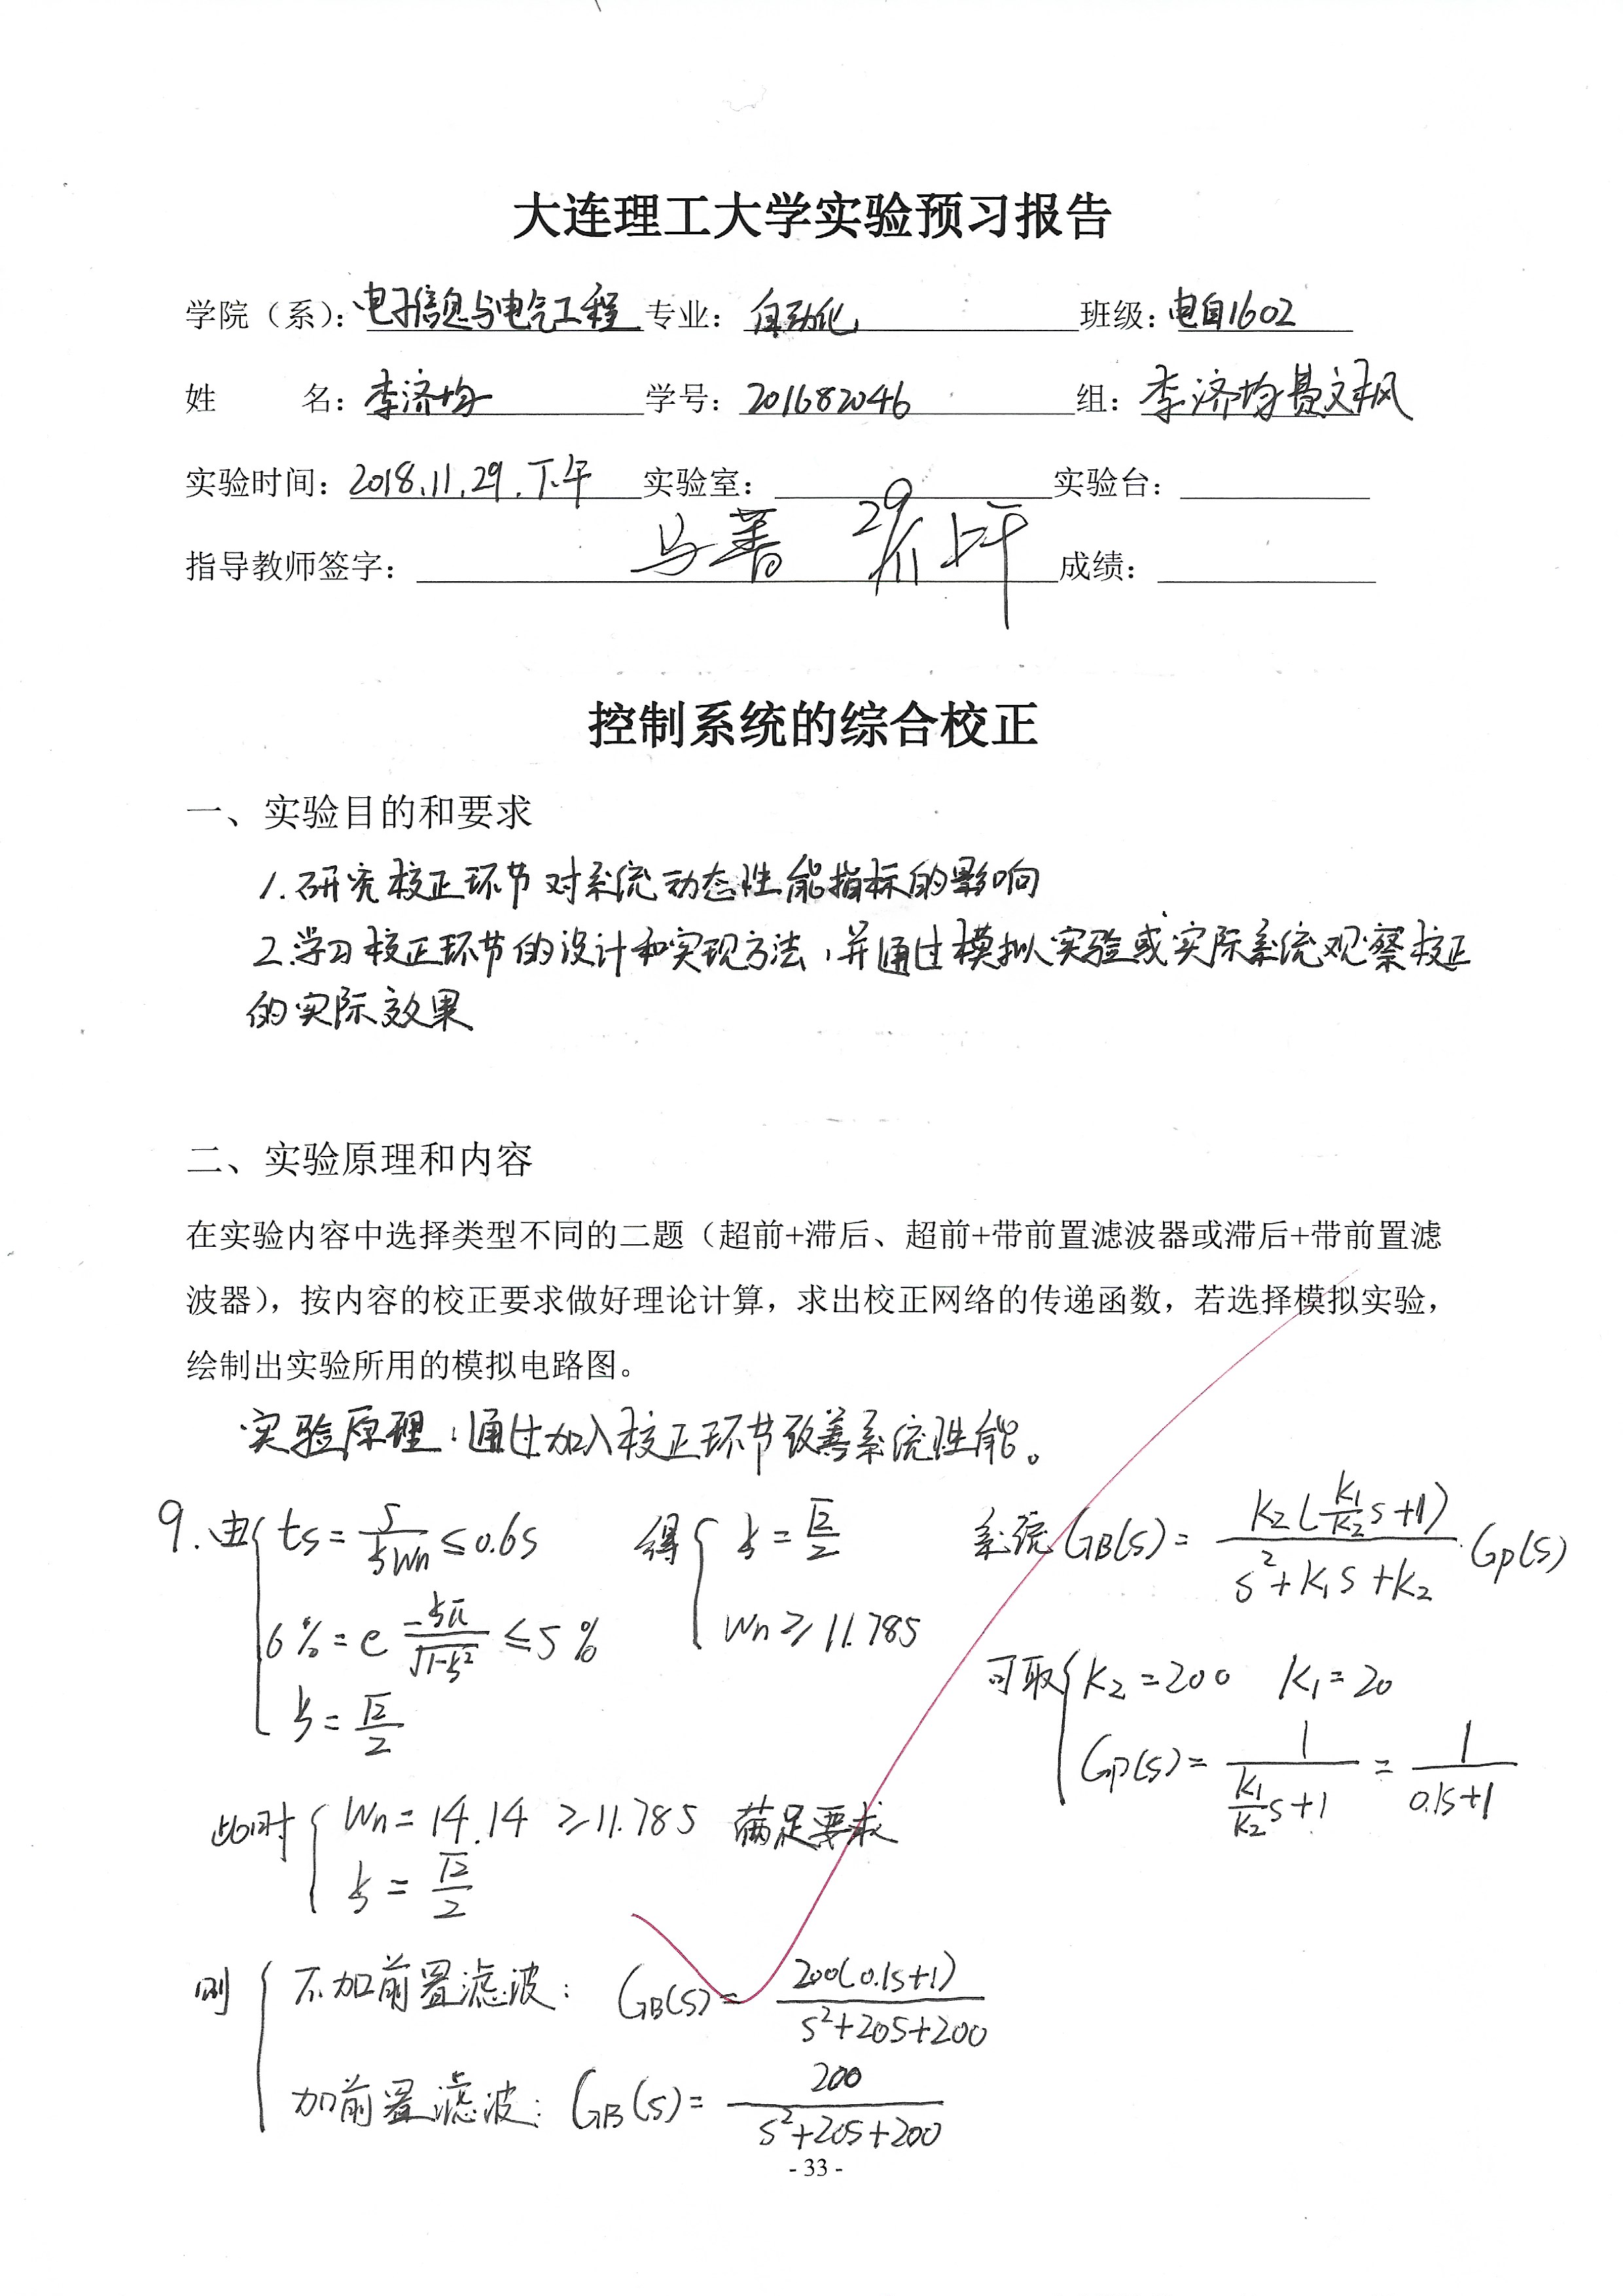 大连理工大学实验预习报告
学院（系）：电子信息与电气工程 专业：自动化 班级：电自1602
姓 名：李济均 学号：201682046 组：李济均 文枫
实验时间：2018.11.29.下午 实验室： 实验台：
指导教师签字： 马 29/11 成绩：
控制系统的综合校正
一、实验目的和要求
1.研究校正环节对系统动态性能指标的影响
2.学习校正环节的设计和实现方法，并通过模拟实验或实际系统观察校正
的实际效果
二、实验原理和内容
在实验内容中选择类型不同的二题（超前+滞后、超前+带前置滤波器或滞后+带前置滤
波器），按内容的校正要求做好理论计算，求出校正网络的传递函数，若选择模拟实验，
绘制出实验所用的模拟电路图。
实验原理：通过加入校正环节改善系统性能。
9.由{ ts = 5/(ξWn) ≤ 0.6s 得{ ξ = √2/2 系统GB(s) = K2(K1/K2 s+1)/(s²+K1s+K2) · Gp(s)
σ% = e^(-ξπ/√(1-ξ²)) ≤ 5% Wn ≥ 11.785
ξ = √2/2 可取{ K2 = 200 K1 = 20
Gp(s) = 1/(K1/K2 s+1) = 1/(0.1s+1)
此时{ Wn = 14.14 ≥ 11.785 满足要求
ξ = √2/2
则{ 不加前置滤波： GB(s) = 200(0.1s+1)/(s²+20s+200)
加前置滤波： GB(s) = 200/(s²+20s+200)
- 33 -